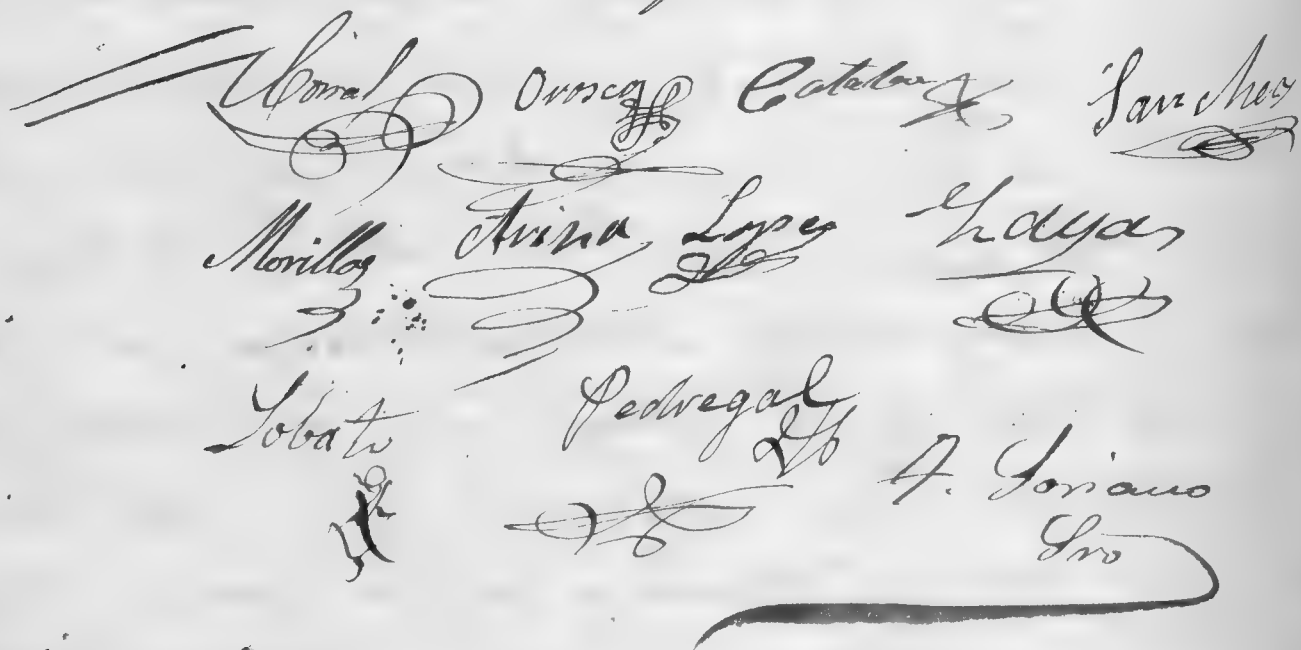 Corral Orosco Catalan Sanchez
Morillas Ariza Lopez Zayas
Lobato Pedregal
A. Soriano
Srio